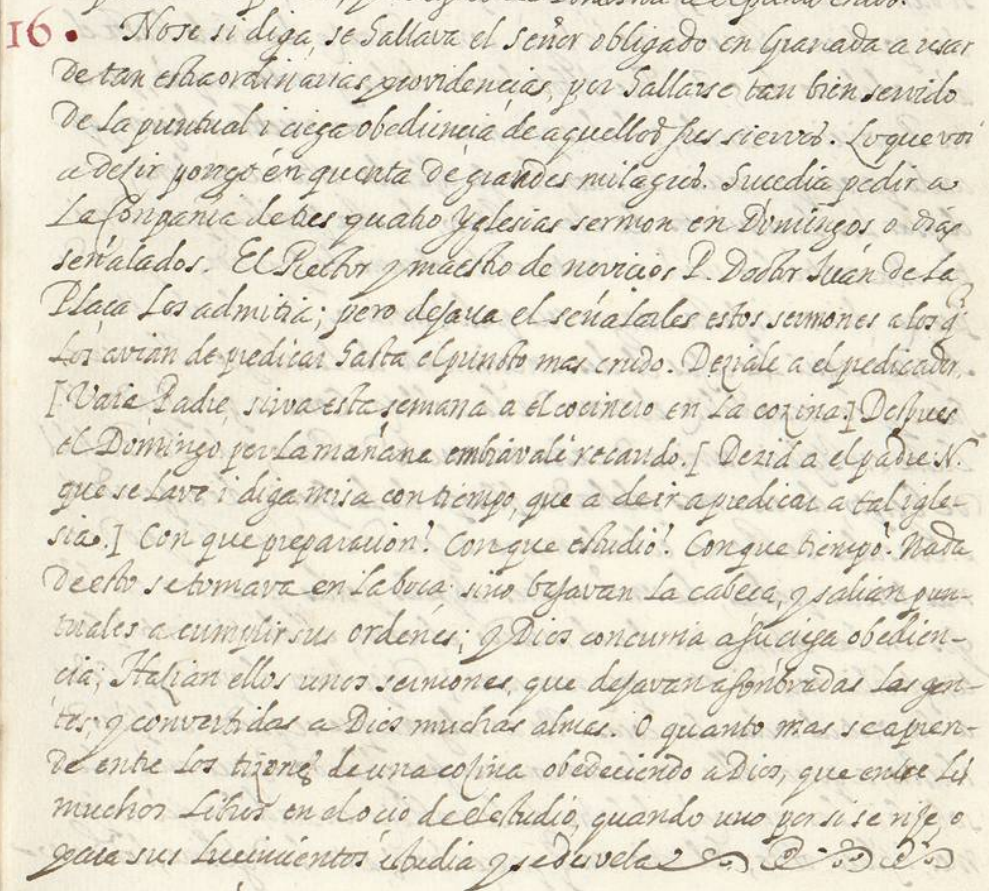 16. No se si diga, se hallava el señor obligado en Granada a usar
de tan estraordinarias providencias, por hallarse tan bien servido
de la puntual i ciega obediencia de aquellos sus siervos. Lo que voi
a desir pongo en quenta de grandes milagros. Sucedia pedir a
la Conpania de tres quatro Yglesias sermon en Domingos o dias
señalados. El Rector y maestro de novicios P. Dodor Juan de la
Plaça los admitia; pero dejava el señalarles estos sermones a los q̃
los avian de predicar hasta el punsto mas crudo. Deziale a el predicador,
[Vaia Padre, sirva esta semana a el cocinero en la cozina.] Despues
el Domingo por la mañana embiavale recaudo. [Dezid a el padre N.
que se lave i diga misa con tiempo, que a de ir a predicar a tal igle-
sia.] Con que preparacion! Con que estudio! Con que tiempo! Nada
de esto se tomava en la boca sino bajavan la cabeca, y salian pun-
tuales a cumplir sus ordenes; y Dios concurria a su ciega obedien-
cia; Hasian ellos unos sermones, que dejavan asonbradas las gen-
tes; y convertidas a Dios muchas almas. O quanto mas se apren-
de entre los tizones de una cosina obedeciendo a Dios, que entre los
muchos libros en el ocio de el estudio, quando uno por si se rije, o
para sus lucimientos estudia y se desvela